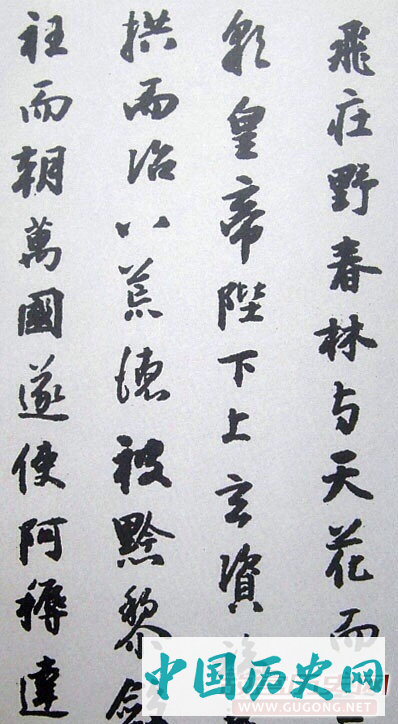 飛庄野春林与天花而
彩皇帝陛下上玄資
拱而治八荒德被黔黎斂
衽而朝萬國遂使阿耨達
中国历史网
WWW.GUGONG.NET